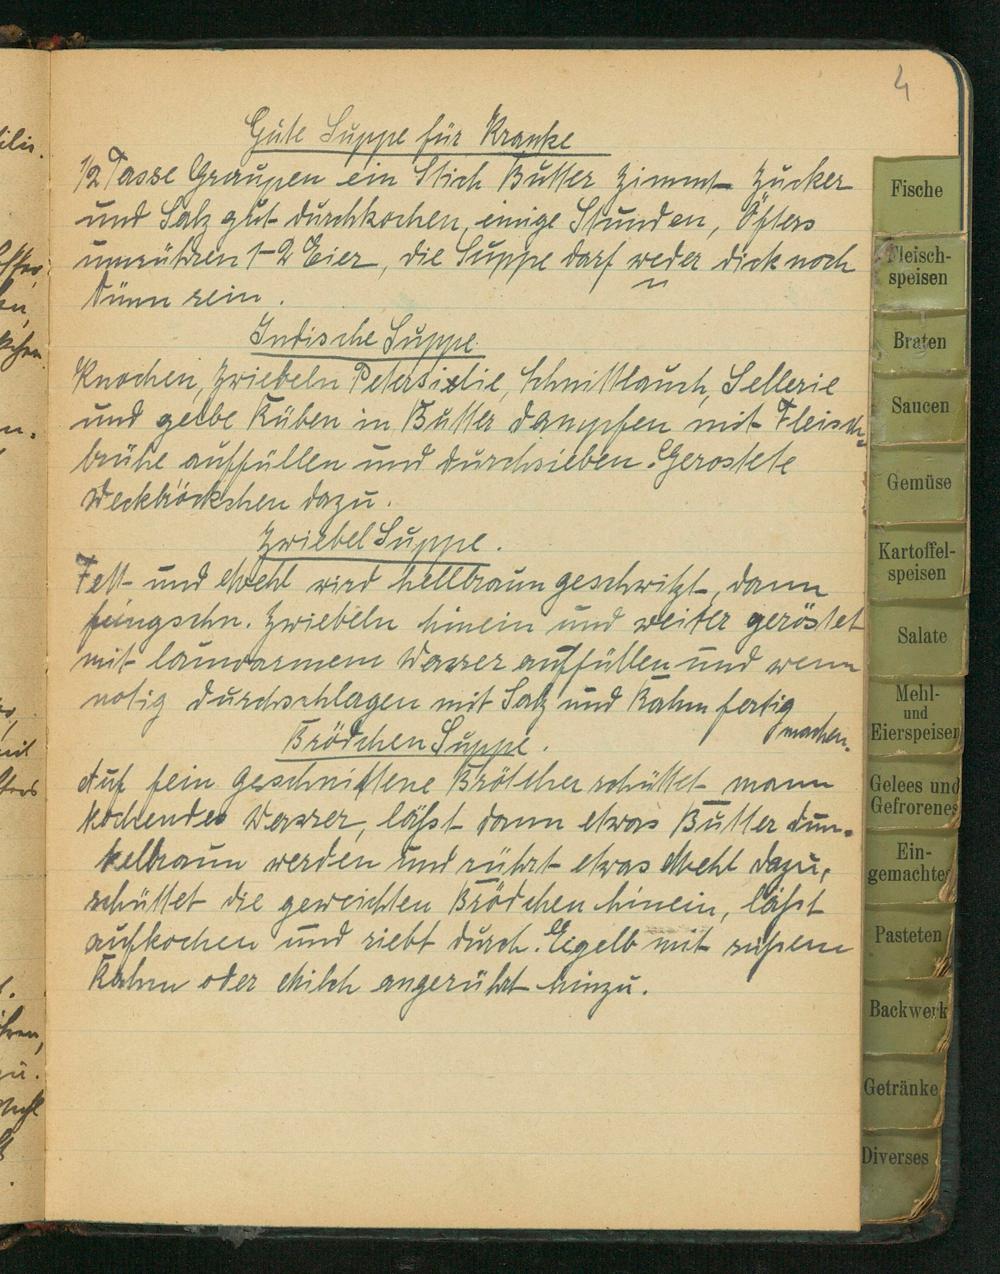 4
Gute Suppe für Kranke
1/2 Tasse Graupen ein Stich Butter Zimmt Zucker
und Salz gut durchkochen, einige Stunden, Öfters
umrühren 1-2 Eier, die Suppe darf weder dick noch
dünn sein.
Indische Suppe
Knochen, Zwiebeln Petersilie, Schnittlauch, Sellerie
und gelbe Rüben in Butter dampfen mit Fleisch-
brühe auffüllen und durchsieben. Gerostete
Weckbröckchen dazu.
Zwiebel Suppe.
Fett und Mehl wird hellbraun geschwitzt, dann
feingschn. Zwiebeln hinein und weiter geröstet
mit lauwarmem Wasser auffüllen und wenn
notig durchschlagen mit Salz und Rahm fertig
machen.
Brödchen Suppe.
Auf fein geschnittene Brötcher schüttet mann
kochendes Wasser, läßt dann etwas Butter dun-
kelbraun werden und rührt etwas Mehl dazu,
schüttet die geweichten Brödchen hinein, läßt
aufkochen und riebt durch. Eigelb mit süßem
Rahm oder Milch angerührt hinzu.
Fische
Fleisch-
speisen
Braten
Saucen
Gemüse
Kartoffel-
speisen
Salate
Mehl-
und
Eierspeisen
Gelees und
Gefrorenes
Ein-
gemachtes
Pasteten
Backwerk
Getränke
Diverses